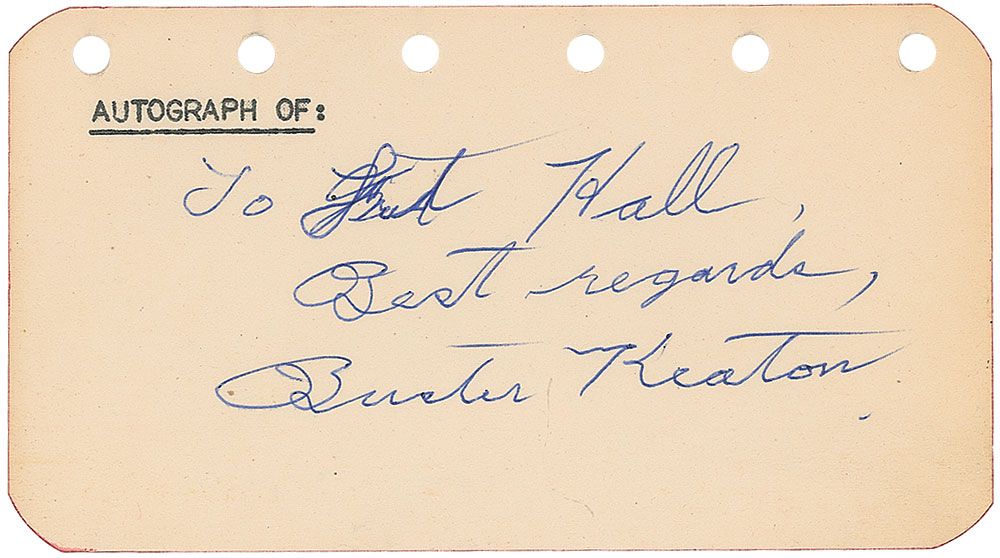 AUTOGRAPH OF:
To Hall,
Best regards,
Buster Keaton.